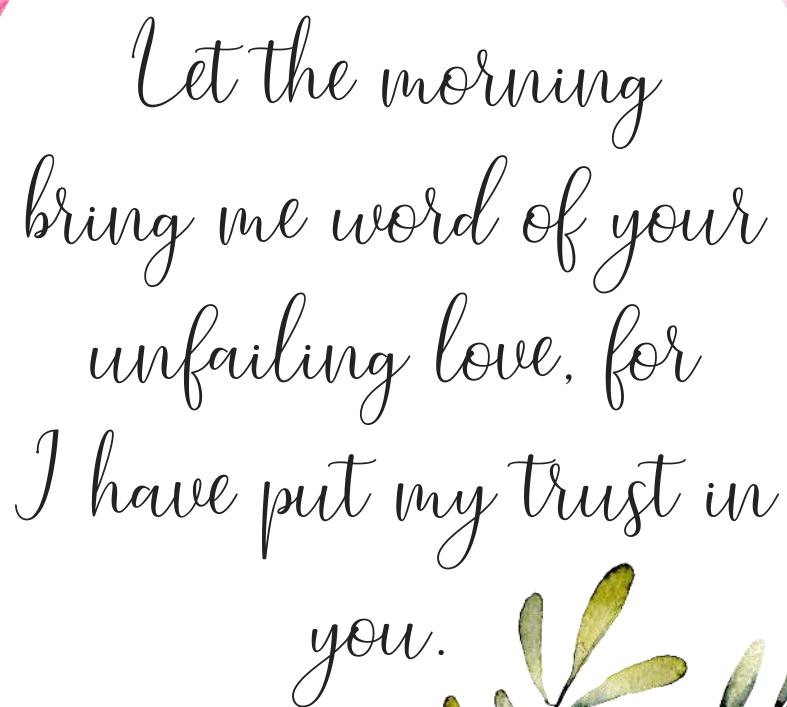 Let the morning
bring me word of your
unfailing love, for
I have put my trust in
you.